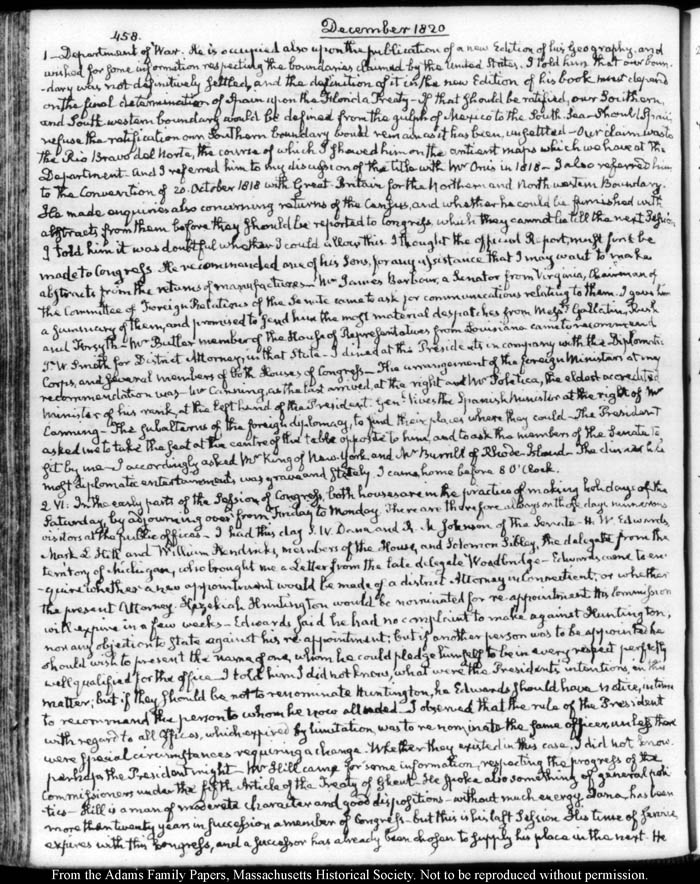 458.
December 1820
1 — Department of War. He is occupied also upon the publication of a new Edition of his Geography, and
wished for some information respecting the boundaries claimed by the United States. I told him that our boun-
-dary was not definitively settled, and the definition of it in the new Edition of his book must depend
on the final determination of Spain upon the Florida Treaty — If that should be ratified, our Southern
and South western boundary would be defined from the gulph of Mexico to the South Sea — Should Spain
refuse the ratification our Southern boundary would remain as it has been, unsettled — Our claim was to
the Rio Bravo del Norte, the course of which I shewed him on the antient maps which we have at the
Department. And I referred him to my discussion of the title with Mr Onis in 1818 — I also referred him
to the Convention of 20. October 1818 with Great-Britain for the Northern and North western Boundary.
He made enquiries also concerning returns of the Census, and whether he could be furnished with
abstracts from them before they should be reported to Congress, which they cannot be till the next Session
I told him it was doubtful whether I could allow this. I thought the official Report, must first be
made to Congress. He recommended one of his Sons, for any assistance that I may want to make
abstracts from the returns of manufactures — Mr James Barbour, a Senator from Virginia, Chairman of
the Committee of Foreign Relations of the Senate came to ask for communications relating to them. I gave him
a summary of them, and promised to send him the most material despatches from Messrs Gallatin, Rush
and Forsyth — Mr Butler member of the House of Representatives from Louisiana came to recommend
J. W. Smith for District Attorney, in that State — I dined at the Presidents in company with the Diplomatic
Corps, and several members of both Houses of Congress — The arrangement of the foreign Ministers at my
recommendation was — Mr Canning, as the last arrived, at the right and Mr Poletica, the eldest accredited
minister of his rank, at the left hand of the President. Genl Vives the Spanish Minister at the right of Mr
Canning — The subalterns of the foreign diplomacy, to find their places where they could — The President
asked me to take the seat at the centre of the table opposite to him, and to ask the members of the Senate to
sit by me — I accordingly asked Mr King of New-York and Mr Burrill of Rhode-Island — The dinner like
most diplomatic entertainments was grave and stately. I came home before 8 O'Clock.
2 VI. In the early parts of the Session of Congress, both houses are in the practice of making holidays of the
Saturday, by adjourning over from Friday to Monday. There are therefore always on those days numerous
visitors at the public offices — I had this day S. W. Dana, and R. M. Johnson of the Senate — H. W. Edwards,
Mark L. Hill and William Hendricks, members of the House, and Solomon Sibley, the delegate from the
territory of Michigan, who brought me a Letter from the late delegate Woodbridge — Edwards came to en-
-quire whether a new appointment would be made of a district Attorney in Connecticut, or whether
the present Attorney. Hezekiah Huntington would be nominated for re-appointment. His Commission
will expire in a few weeks — Edwards said he had no complaint to make against Huntington,
nor any objection to state against his re-appointment; but if another person was to be appointed he
should wish to present the name of one, whom he could pledge himself to be in every respect perfectly
well qualified for the office. — I told him I did not know, what were the Presidents intentions, in this
matter; but if they should be not to renominate Huntington, he Edwards should have notice, in time
to recommend the person to whom he now alluded. I observed that the rule of the President
with regard to all Offices, which expired by limitation, was to re-nominate the same officer, unless there
were special circumstances requiring a change. Whether they existed in this case, I did not know.
perhaps the President might — Mr Hill came for some information, respecting the progress of the
Commissioners under the fifth Article of the Treaty of Ghent — He spoke also something of general poli
tics — Hill is a man of moderate character and good dispositions — without much energy. Dana, has been
more than twenty years in succession a member of Congress — but this is his last Session. His time of service
expires with this Congress, and a successor has already been chosen to supply his place in the next. He
From the Adams Family Papers, Massachusetts Historical Society. Not to be reproduced without permission.